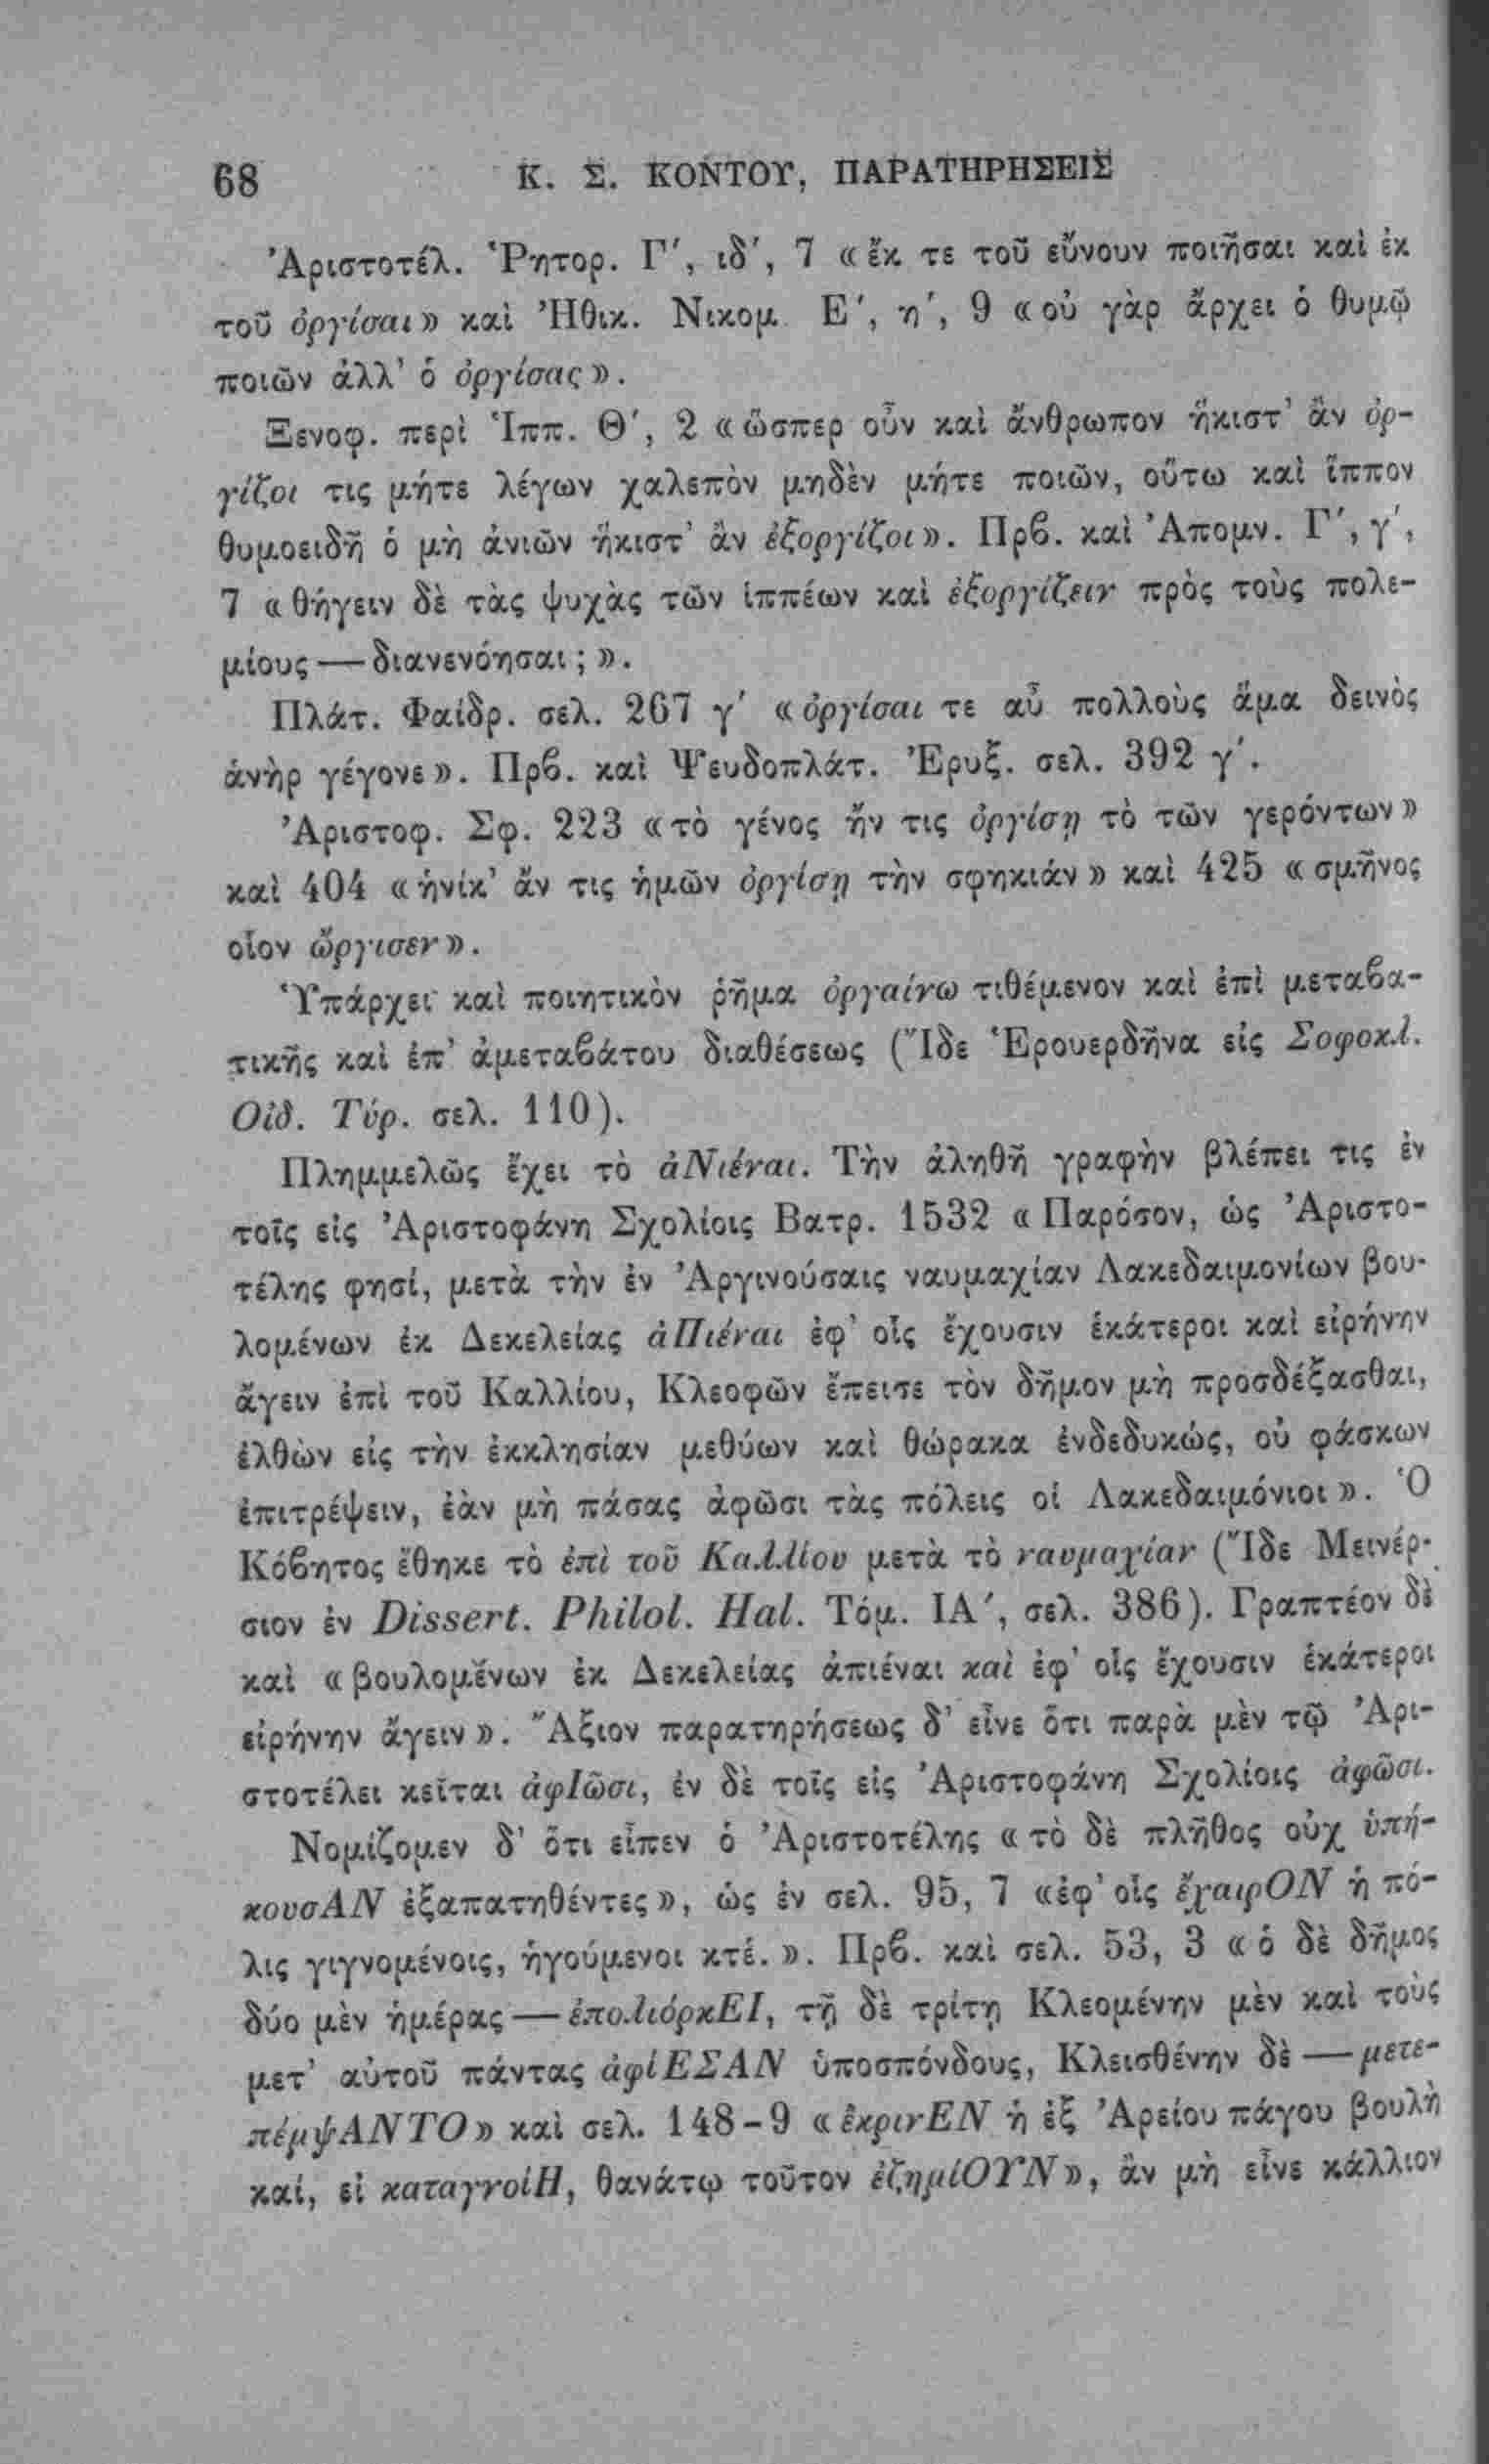 68 Κ. Σ. ΚΟΝΤΟΥ, ΠΑΡΑΤΗΡΗΣΕΙΣ
Ἀριστοτέλ. Ῥητορ. Γ΄, ιδ΄, 7 «ἔκ τε τοῦ εὔνουν ποιῆσαι καὶ ἐκ
τοῦ ὀργίσαι» καὶ Ἠθικ. Νικομ. Ε΄, η΄, 9 «οὐ γὰρ ἄρχει ὁ θυμῷ
ποιῶν ἀλλ’ ὁ ὀργίσας».
Ξενοφ. περὶ Ἱππ. Θ΄, 2 «ὥσπερ οὖν καὶ ἄνθρωπον ἥκιστ’ ἂν ὀρ-
γίζοι τις μήτε λέγων χαλεπὸν μηδὲν μήτε ποιῶν, οὕτω καὶ ἵππον
θυμοειδῆ ὁ μὴ ἀνιῶν ἥκιστ’ ἂν ἐξοργίζοι». Πρβ. καὶ Ἀπομν. Γ΄, γ΄,
7 «θήγειν δὲ τὰς ψυχὰς τῶν ἱππέων καὶ ἐξοργίζειν πρὸς τοὺς πολε-
μίους — διανενόησαι;».
Πλάτ. Φαίδρ. σελ. 267 γ΄ «ὀργίσαι τε αὖ πολλοὺς ἅμα δεινὸς
ἀνὴρ γέγονε». Πρβ. καὶ Ψευδοπλάτ. Ἐρυξ. σελ. 392 γ΄.
Ἀριστοφ. Σφ. 223 «τὸ γένος ἤν τις ὀργίσῃ τὸ τῶν γερόντων»
καὶ 404 «ἡνίκ’ ἄν τις ἡμῶν ὀργίσῃ τὴν σφηκιάν» καὶ 425 «σμῆνος
οἷον ὤργισεν».
Ὑπάρχει καὶ ποιητικὸν ῥῆμα ὀργαίνω τιθέμενον καὶ ἐπὶ μεταβα-
τικῆς καὶ ἐπ’ ἀμεταβάτου διαθέσεως (Ἴδε Ἑρουερδῆνα εἰς Σοφοκλ.
Οἰδ. Τύρ. σελ. 110).
Πλημμελῶς ἔχει τὸ ἀΝιέναι. Τὴν ἀληθῆ γραφὴν βλέπει τις ἐν
τοῖς εἰς Ἀριστοφάνη Σχολίοις Βατρ. 1532 «Παρόσον, ὡς Ἀριστο-
τέλης φησί, μετὰ τὴν ἐν Ἀργινούσαις ναυμαχίαν Λακεδαιμονίων βου-
λομένων ἐκ Δεκελείας ἀΠιέναι ἐφ’ οἷς ἔχουσιν ἑκάτεροι καὶ εἰρήνην
ἄγειν ἐπὶ τοῦ Καλλίου, Κλεοφῶν ἔπεισε τὸν δῆμον μὴ προσδέξασθαι,
ἐλθὼν εἰς τὴν ἐκκλησίαν μεθύων καὶ θώρακα ἐνδεδυκώς, οὐ φάσκων
ἐπιτρέψειν, ἐὰν μὴ πάσας ἀφῶσι τὰς πόλεις οἱ Λακεδαιμόνιοι». Ὁ
Κόβητος ἔθηκε τὸ ἐπὶ τοῦ Καλλίου μετὰ τὸ ναυμαχίαν (Ἴδε Μεινέρ-
σιον ἐν Dissert. Philol. Hal. Τόμ. ΙΑ΄, σελ. 386). Γραπτέον δὲ
καὶ «βουλομένων ἐκ Δεκελείας ἀπιέναι καὶ ἐφ’ οἷς ἔχουσιν ἑκάτεροι
εἰρήνην ἄγειν». Ἄξιον παρατηρήσεως δ’ εἶνε ὅτι παρὰ μὲν τῷ Ἀρι-
στοτέλει κεῖται ἀφΙῶσι, ἐν δὲ τοῖς εἰς Ἀριστοφάνη Σχολίοις ἀφῶσι.
Νομίζομεν δ’ ὅτι εἶπεν ὁ Ἀριστοτέλης «τὸ δὲ πλῆθος οὐχ ὑπή-
κουσΑΝ ἐξαπατηθέντες», ὡς ἐν σελ. 95, 7 «ἐφ’ οἷς ἔχαιρΟΝ ἡ πό-
λις γιγνομένοις, ἡγούμενοι κτἑ.». Πρβ. καὶ σελ. 53, 3 «ὁ δὲ δῆμος
δύο μὲν ἡμέρας — ἐπολιόρκΕΙ, τῇ δὲ τρίτῃ Κλεομένην μὲν καὶ τοὺς
μετ’ αὐτοῦ πάντας ἀφίΕΣΑΝ ὑποσπόνδους, Κλεισθένην δὲ — μετε-
πέμψΑΝΤΟ» καὶ σελ. 148-9 «ἔκρινΕΝ ἡ ἐξ Ἀρείου πάγου βουλὴ
καί, εἰ καταγνοίΗ, θανάτῳ τοῦτον ἐζημίΟΥΝ», ἂν μὴ εἶνε κάλλιον